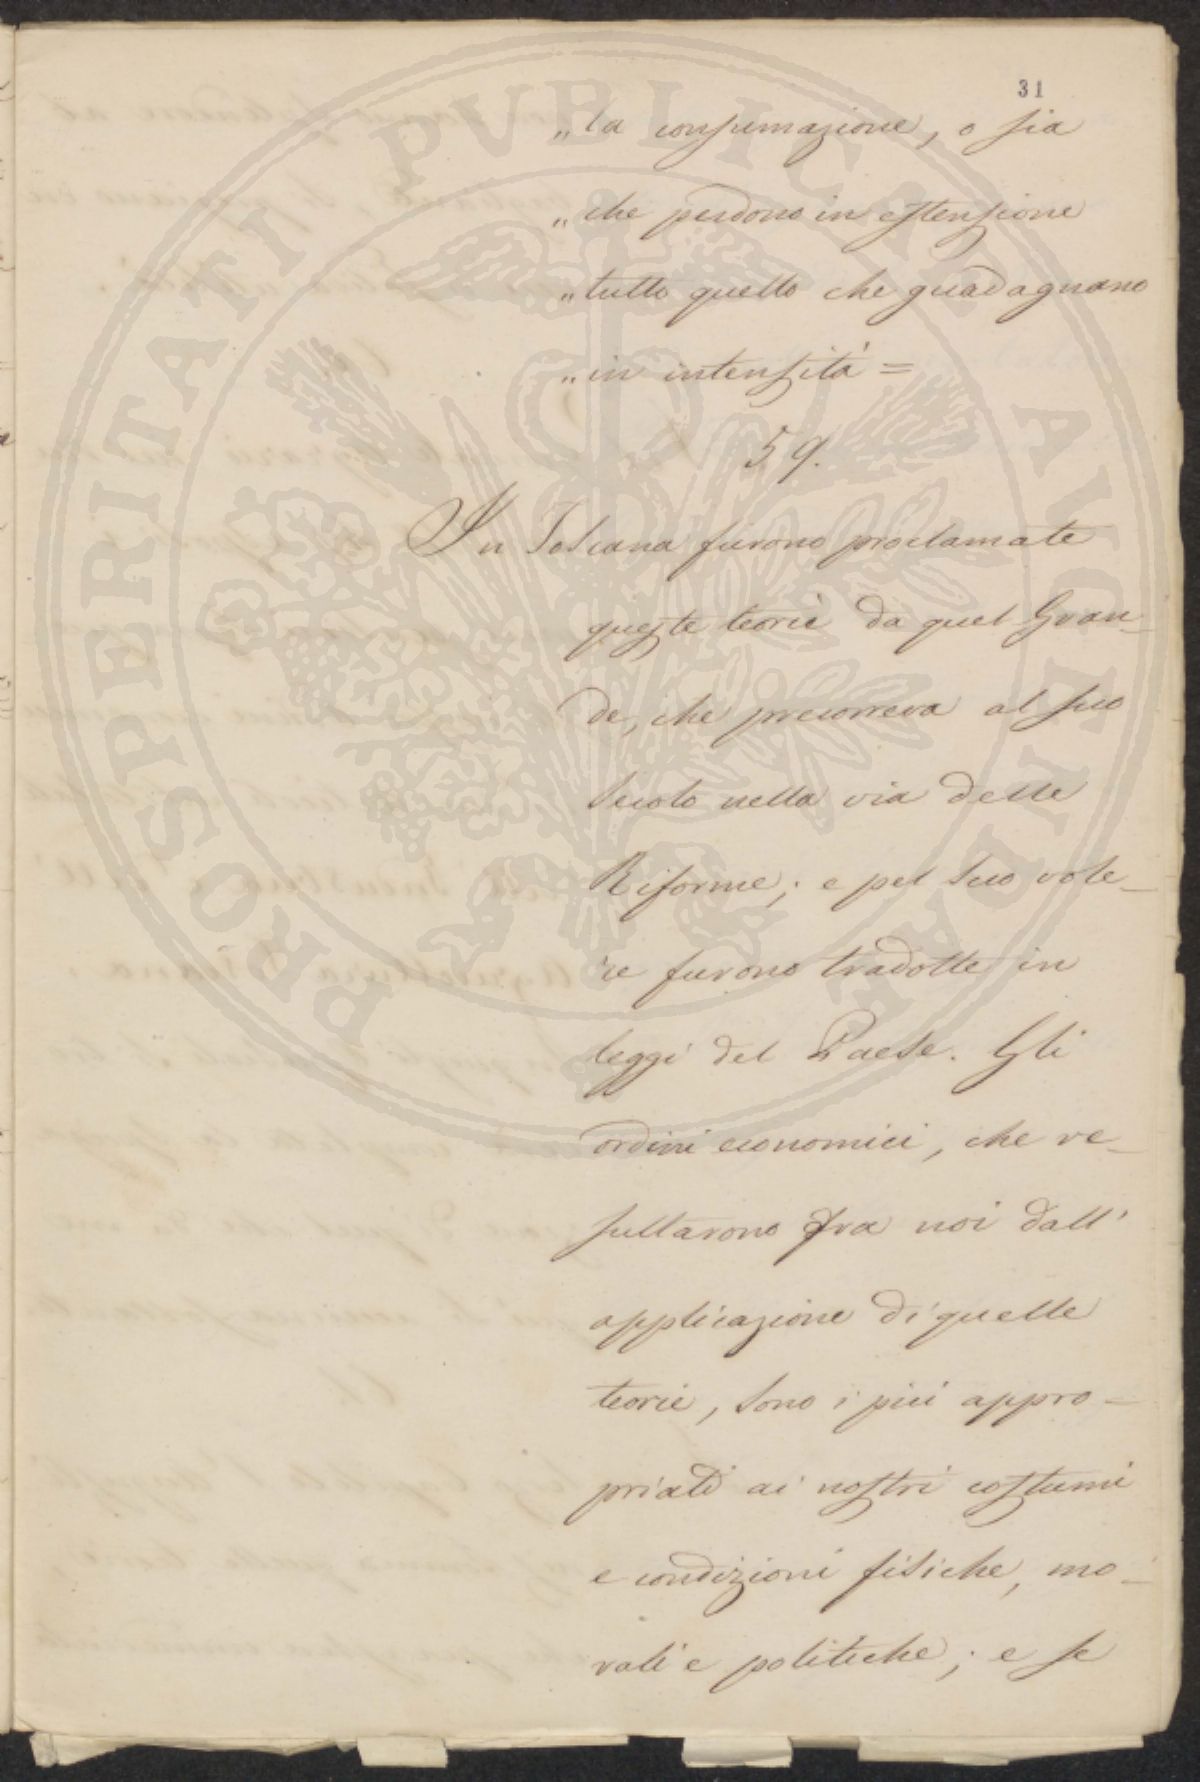 31
„ la consumazione, o sia
„ che perdono in estensione
„ tutto quello che guadagnano
„ in intensità =
59.
In Toscana furono proclamate
queste teorie da quel Gran_
de, che precorreva al suo
Secolo nella via delle
Riforme; e pel suo vole_
re furono tradotte in
leggi del Paese. Gli
ordini economici, che re_
sultarono fra noi dall'
applicazione di quelle
teorie, sono i più appro=
priati ai nostri costumi
e condizioni fisiche, mo_
rali e politiche; e se
PROSPERITATI PVBLICAE AVGENDAE